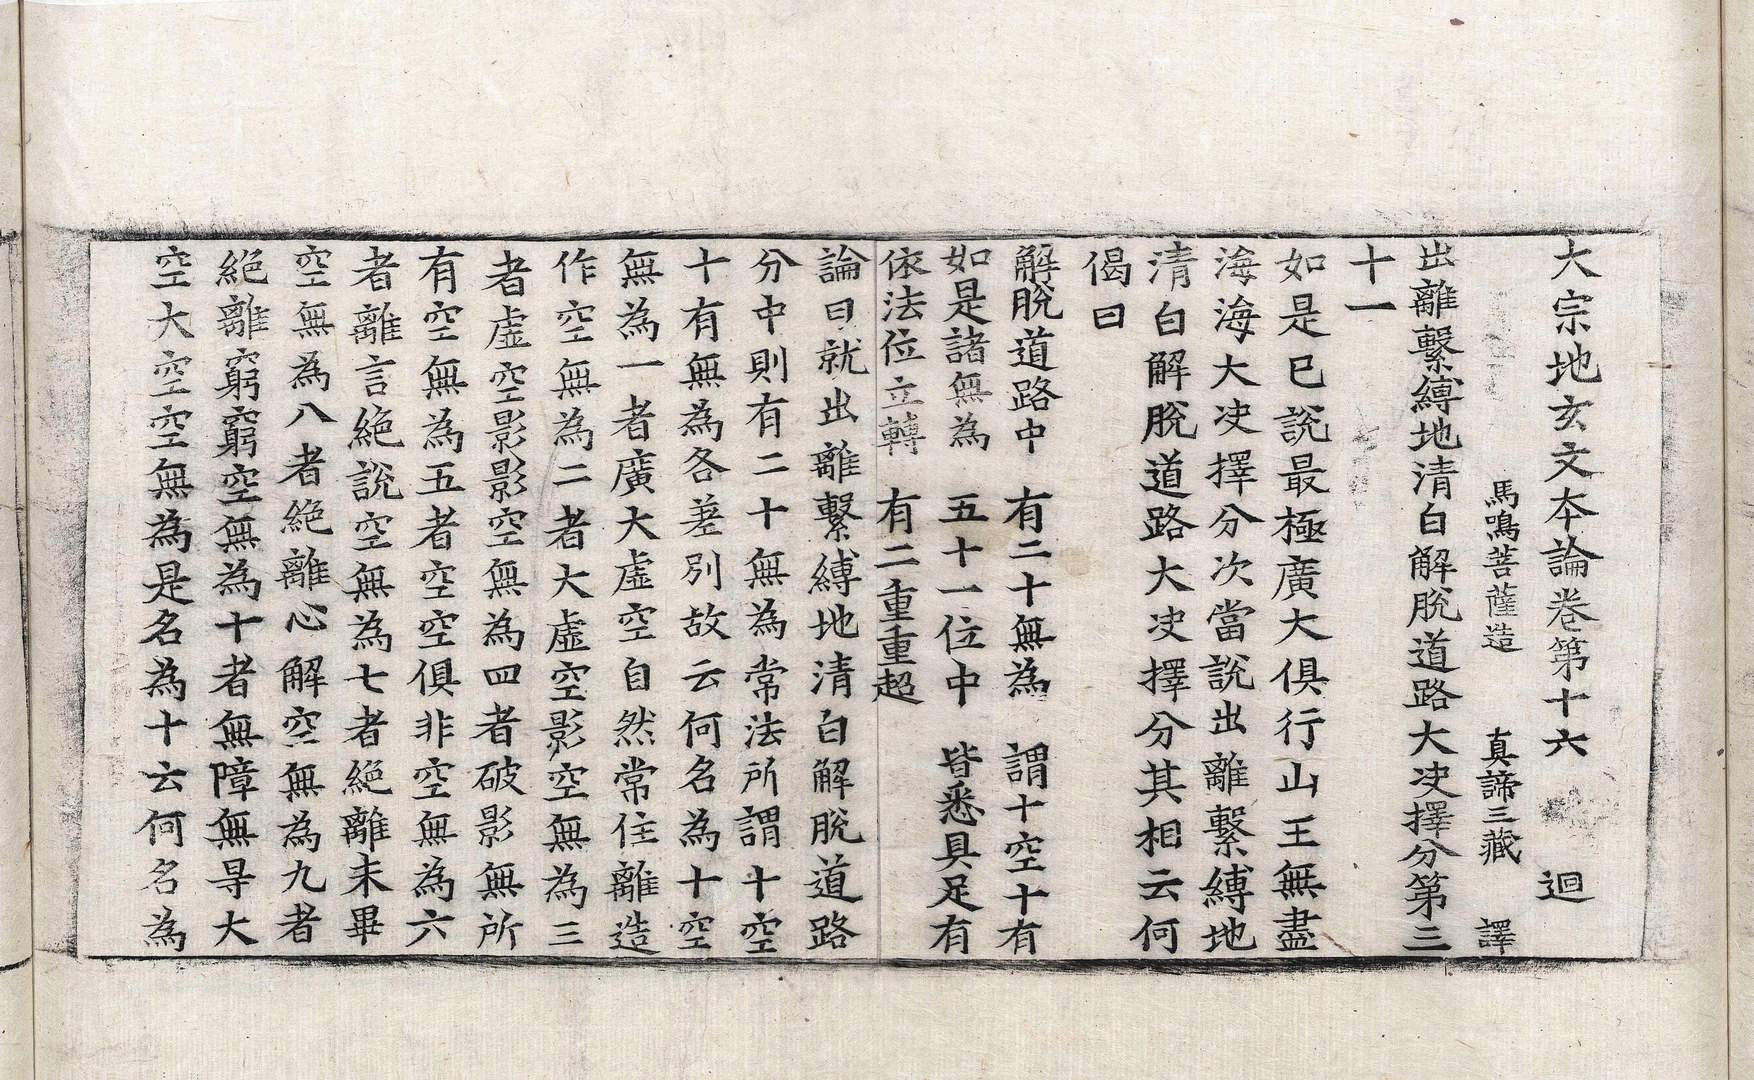 大宗地玄文本論卷第十六　迴
馬鳴菩薩造　真諦三藏　譯
出離繫縛地清白解脫道路大决擇分第三
十一
如是已說最極廣大俱行山王無盡
海海大决擇分次當說出離繫縛地
清白解脫道路大决擇分其相云何
偈曰
解脫道路中　有二十無為　謂十空十有
如是諸無為　五十一位中　皆悉具足有
依法位立轉　有二重重超
論曰就出離繫縛地清白解脫道路
分中則有二十無為常法所謂十空
十有無為各差別故云何名為十空
無為一者廣大虛空自然常住離造
作空無為二者大虛空影空無為三
者虛空影影空無為四者破影無所
有空無為五者空空俱非空無為六
者離言絕說空無為七者絕離末畢
空無為八者絕離心解空無為九者
絕離窮窮空無為十者無障無㝵大
空大空空無為是名為十云何名為